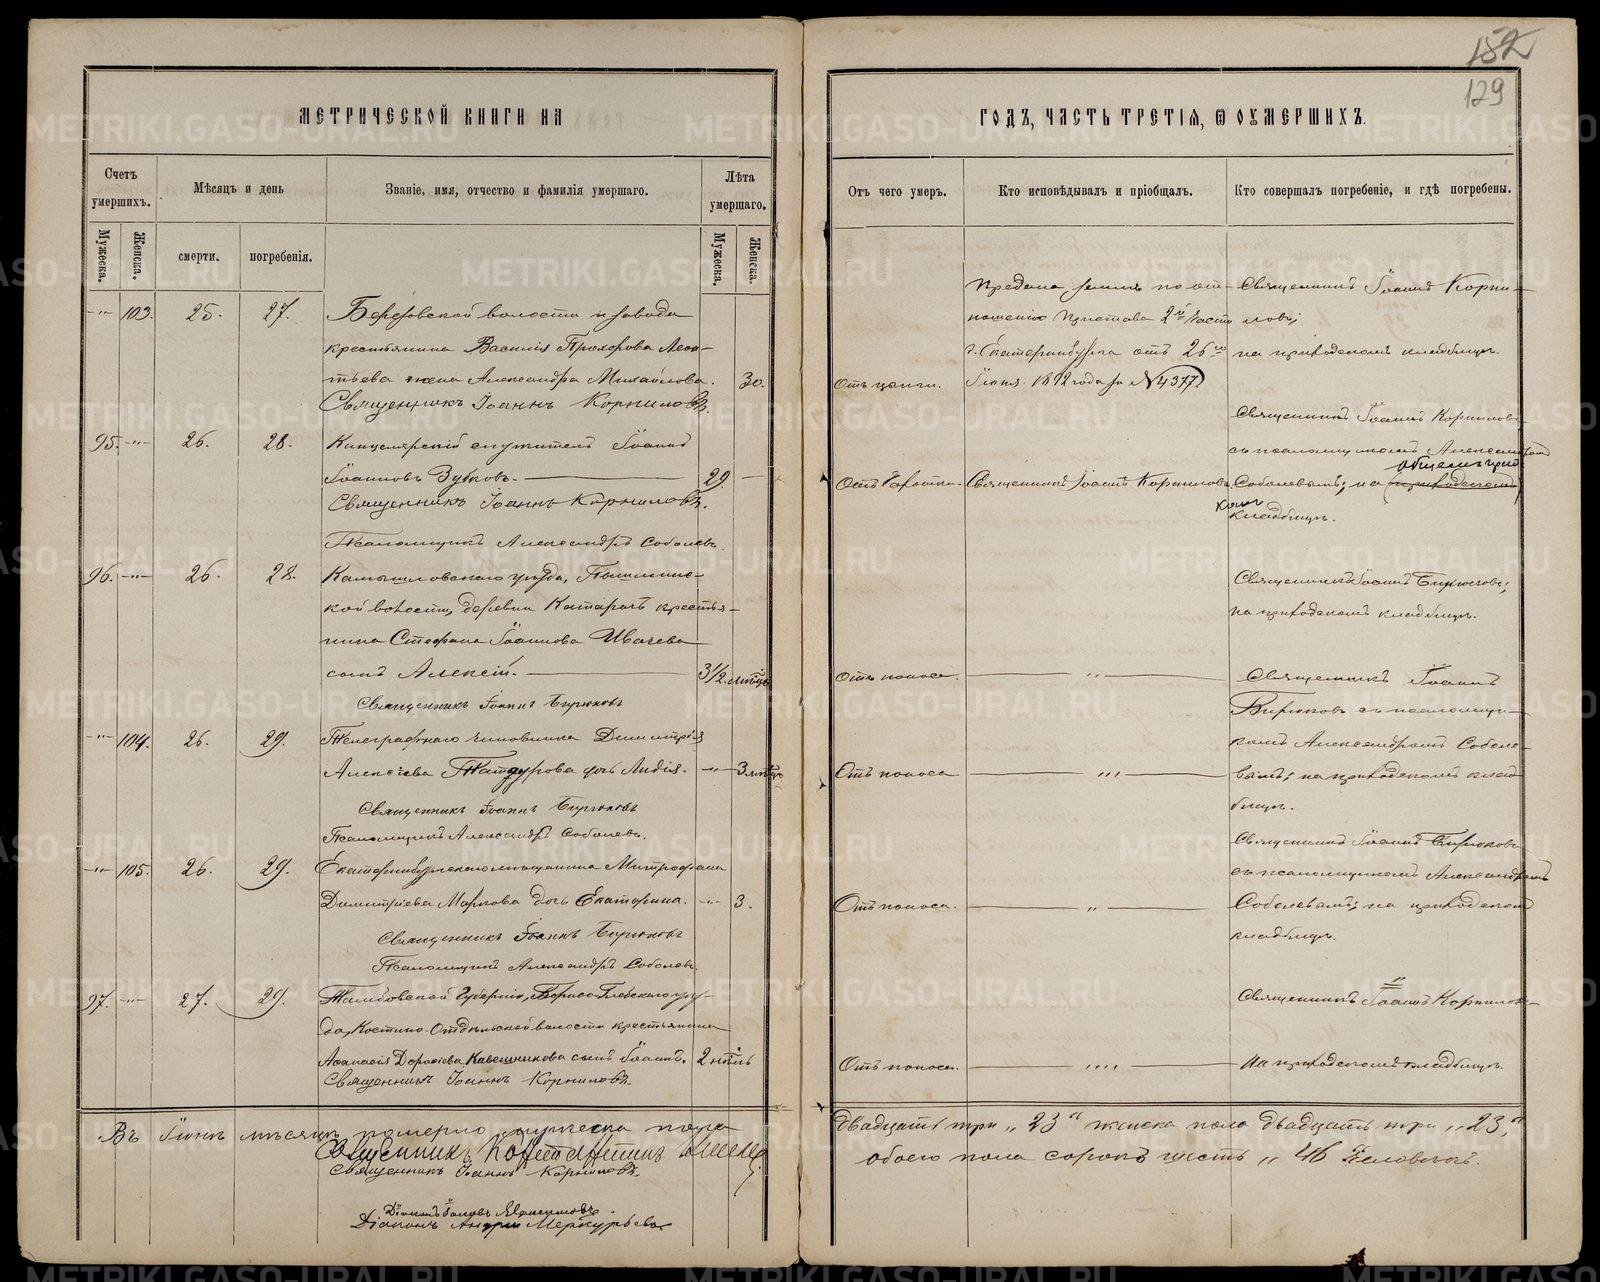 152
129
МЕТРИЧЕСКОЙ КНИГИ НА
ГОДЪ, ЧАСТЬ ТРЕТІЯ, Ѿ ОУМЕРШИХЪ.
Счетъ умершихъ.
Мѣсяцъ и день
Званіе, имя, отчество и фамилія умершаго.
Лѣта умершаго.
Мужеска.
Женска.
смерти.
погребенія.
Мужеска.
Женска.
Отъ чего умеръ.
Кто исповѣдывалъ и пріобщалъ.
Кто совершалъ погребеніе, и гдѣ погребены.
-"- 103. 25. 27. Березовской волости и завода
крестьянина Василія Прохорова Леон-
тьева жена Александра Михайлова. 30.
Священникъ Іоаннъ Корниловъ.
Отъ цынги.
Предана землѣ по от-
ношенію Пристава 2й части
г. Екатеринбурга отъ 26го
Іюня 1892 года за № 4377.
Священникъ Іоаннъ Корни-
ловъ;
на приходскомъ кладбищѣ.
95. -"- 26. 28. Канцелярскій служитель Іоаннъ
Іоанновъ Зубковъ. 29. -
Священникъ Іоаннъ Корниловъ.
Псаломщикъ Александръ Соболевъ.
Отъ чахотки.
Священникъ Іоаннъ Корниловъ
Священникъ Іоаннъ Корниловъ
съ псаломщикомъ Александромъ
Соболевымъ; на (приходскомъ)
кладбищѣ.
96. -"- 26. 28. Камышловскаго уѣзда, Пышминс-
кой волости, деревни Катарачъ крестья-
нина Стефана Іоаннова Ивачева
сынъ Алексій. 3 1/2 мѣсяц.
Священникъ Іоаннъ Бирюковъ
Отъ поноса. "
Священникъ Іоаннъ Бирюковъ;
на приходскомъ кладбищѣ.
-"- 104. 26. 29. Телеграфнаго чиновника Димитрія
Алексѣева дочь Лидія. -"- 3 мѣсяц.
Священникъ Іоаннъ Бирюковъ
Псаломщикъ Александръ Соболевъ.
Отъ поноса "
Священникъ Іоаннъ
Бирюковъ съ псаломщи-
комъ Александромъ Соболе-
вымъ; на приходскомъ клад-
бищѣ.
-"- 105. 26. 29. Екатеринбургскаго мѣщанина Митрофана
Димитріева Маркова дочь Екатерина. -"- 3.
Священникъ Іоаннъ Бирюковъ
Псаломщикъ Александръ Соболевъ.
Отъ поноса. "
Священникъ Іоаннъ Бирюковъ
съ псаломщикомъ Александромъ
Соболевымъ; на приходскомъ
кладбищѣ.
97. -"- 27. 29. Тамбовской губерніи, Борисоглебскаго уѣз-
да, Костино-Отдѣльской волости крестьянина
Аѳанасія Дороѳеева Кавешникова сынъ Іоаннъ. 2 нѣдѣль
Священникъ Іоаннъ Корниловъ.
Отъ поноса. "
Священникъ Іоаннъ Корниловъ
на приходскомъ кладбищѣ.
Въ Іюнѣ мѣсяцѣ померло мужеска пола
двадцать три „23" женска пола двадцать три „23,"
обоего пола сорокъ шесть „46 человѣкъ.
Священникъ Константинъ
Священникъ Іоаннъ Корниловъ.
Діаконъ
Діаконъ Андрей Меркурьевъ